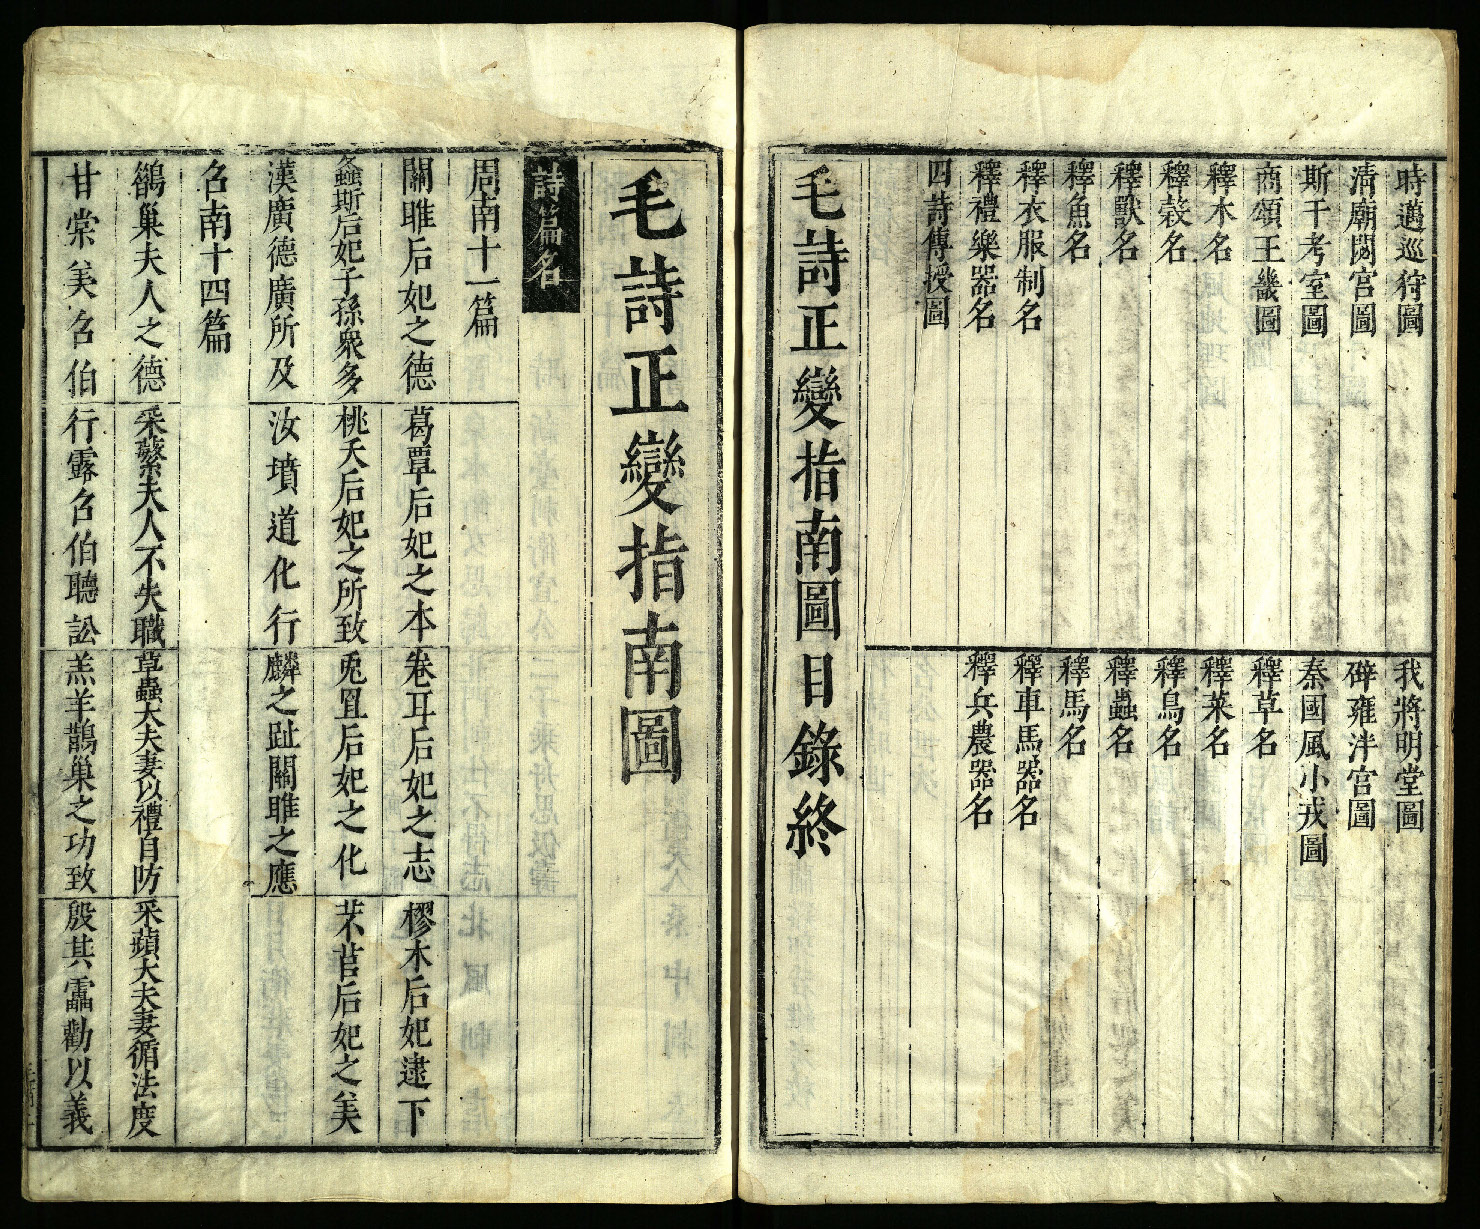 時邁巡狩圖
清廟閟宮圖
斯干考室圖
商頌王畿圖
釋木名
釋榖名
釋獸名
釋魚名
釋衣服制名
釋禮樂器名
四詩傳授圖
我將明堂圖
辟雍泮宮圖
秦國風小戎圖
釋草名
釋菜名
釋鳥名
釋蟲名
釋馬名
釋車馬器名
釋兵農器名
毛詩正變指南圖目錄終
毛詩正變指南圖
詩篇名
周南十一篇
關雎后妃之德 葛覃后妃之本 卷耳后妃之志 樛木后妃逮下
螽斯后妃子孫衆多 桃夭后妃之所致 兎罝后妃之化 芣苢后妃之美
漢廣德廣所及 汝墳道化行 麟之趾關雎之應
召南十四篇
鵲巢夫人之德 采蘩夫人不失職 草蟲大夫妻以禮自防 采蘋大夫妻循法度
甘棠美召伯 行露召伯聽訟 羔羊鵲巢之功致 殷其靁勸以義